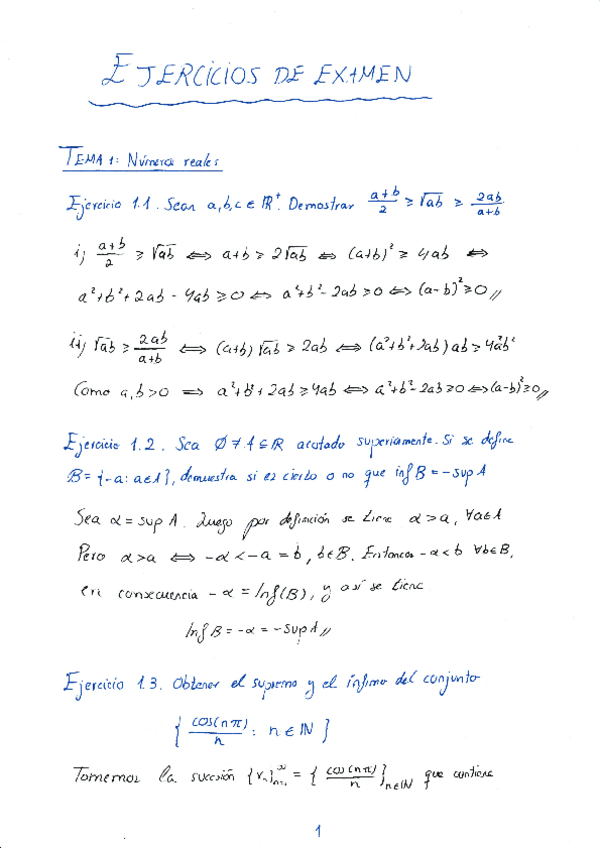 EJERCICIOS DE EXAMEN
TEMA 1: Números reales
Ejercicio 1.1. Sean a,b,c ∈ ℝ⁺. Demostrar (a+b)/2 ≥ √ab ≥ 2ab/(a+b)
i) (a+b)/2 ≥ √ab ⟺ a+b ≥ 2√ab ⟺ (a+b)² ≥ 4ab ⟺
a²+b²+2ab-4ab ≥ 0 ⟺ a²+b²-2ab ≥ 0 ⟺ (a-b)² ≥ 0 //
ii) √ab ≥ 2ab/(a+b) ⟺ (a+b)√ab ≥ 2ab ⟺ (a²+b²+2ab)ab ≥ 4a²b²
Como a,b>0 ⟹ a²+b²+2ab ≥ 4ab ⟺ a²+b²-2ab ≥ 0 ⟺ (a-b)² ≥ 0 //
Ejercicio 1.2. Sea ∅ ≠ A ⊆ ℝ acotado superiormente. Si se define
B = {-a: a∈A}, demuestra si es cierto o no que inf B = -sup A
Sea α = sup A. Luego por definición se tiene α > a, ∀a∈A
Pero α > a ⟺ -α < -a = b, b∈B. Entonces -α < b ∀b∈B,
en consecuencia -α = Inf(B), y así se tiene
Inf B = -α = -Sup A //
Ejercicio 1.3. Obtener el supremo y el ínfimo del conjunto
{ cos(nπ)/n : n ∈ ℕ }
Tomemos la sucesión {xₙ}ₙ₌₁^∞ = { cos(nπ)/n }ₙ∈ℕ que contiene
1